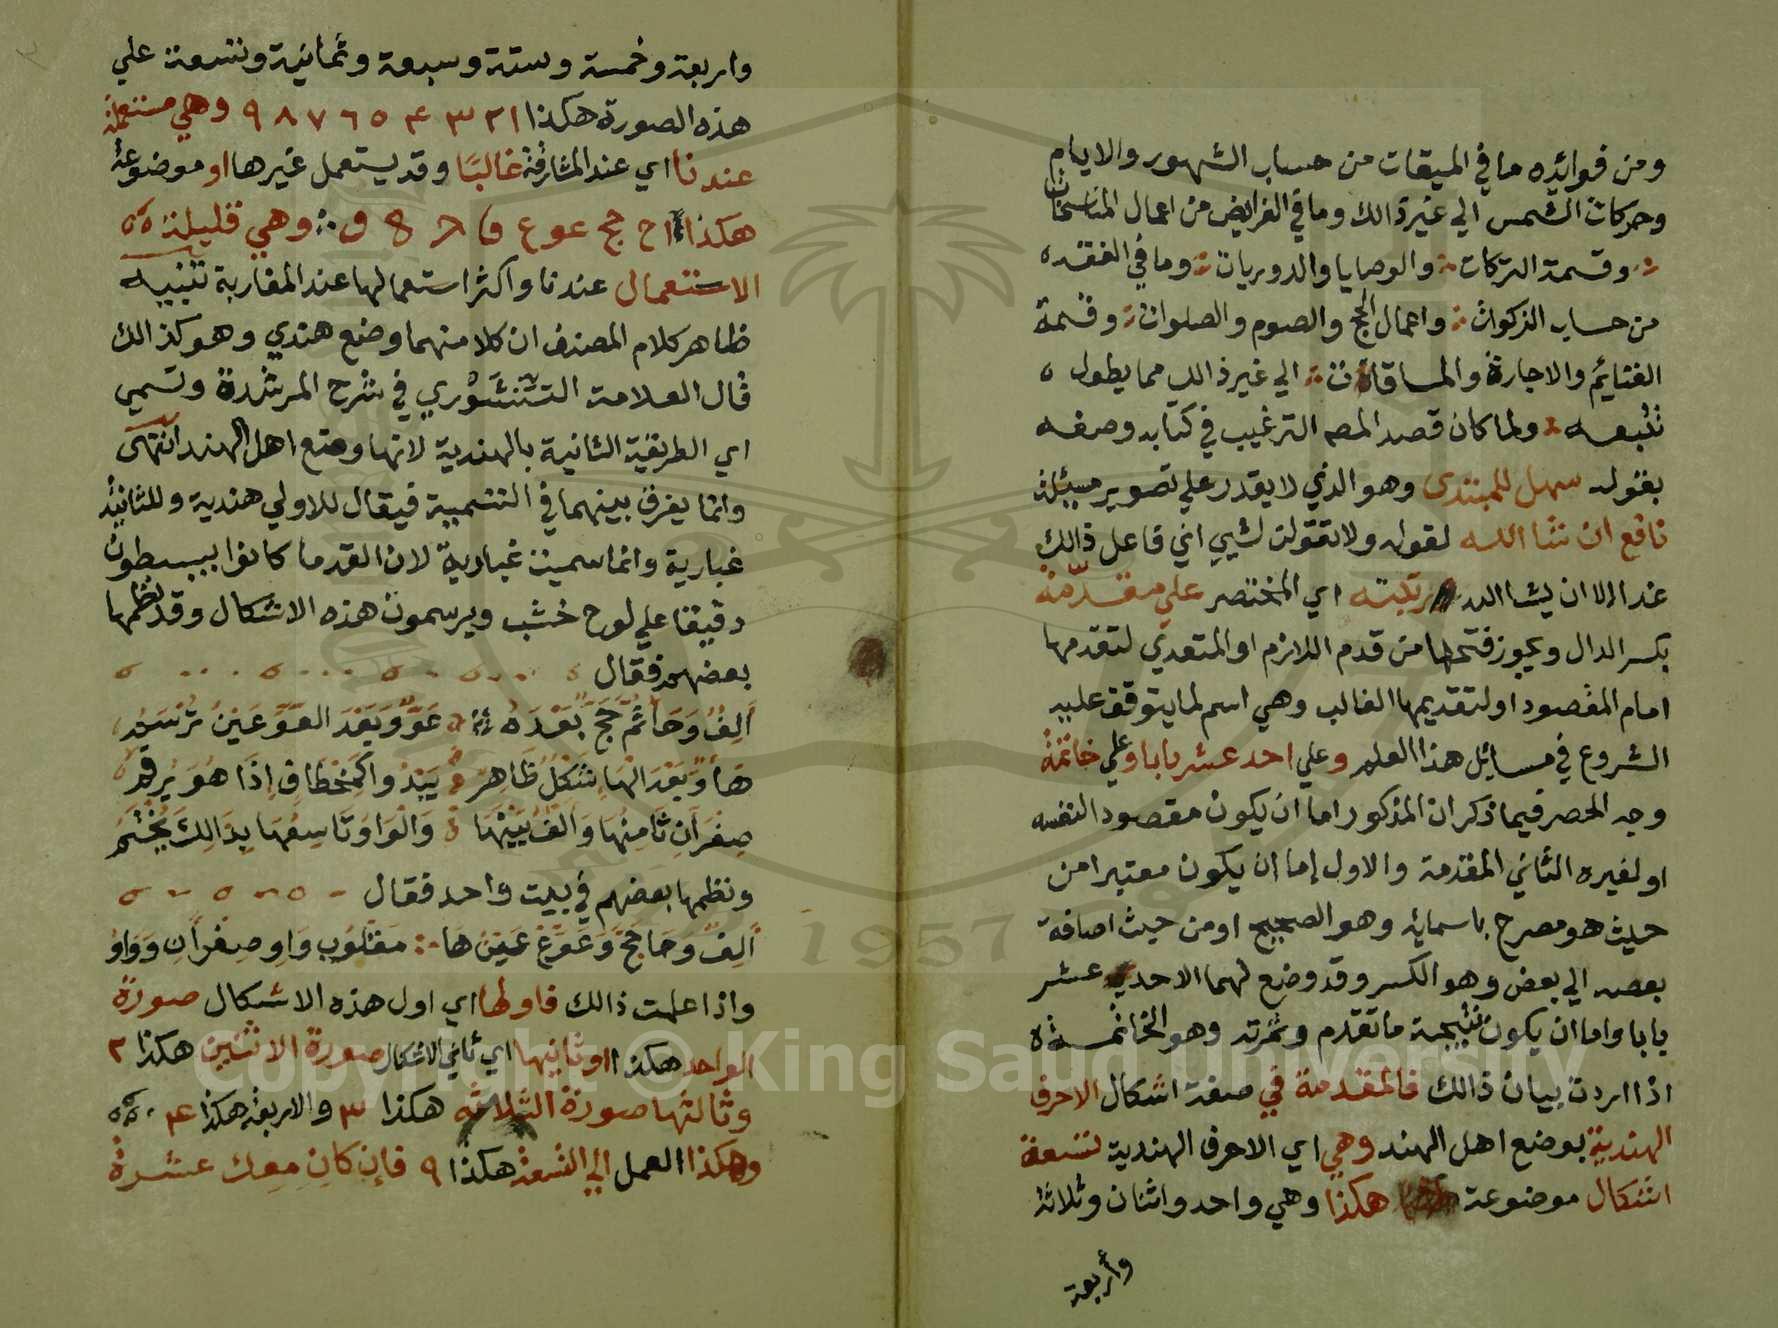 ومن فوائده ما في الميقات من حساب الشهور والايام
وحركات الشمس الي غير ذالك وما في الفرايض من اعمال المناسخات
وقسمة التركات والوصايا والدوريات وما في الفقه
من حساب الزكوات واعمال الحج والصوم والصلوات وقسمة
الغنايم والاجارة والمساقاة الي غير ذالك مما يطول
تتبعه ولما كان قصد المصه الترغيب في كتابه وصفه
بقوله سهل للمبتدى وهو الذي لا يقدر علي تصوير مسئلة
نافع ان شا الله لقوله ولا تقولن لشيي اني فاعل ذالك
غدا الا ان يشا الله رتبته اي المختصر علي مقدّمة
بكسر الدال ويجوز فتحها من قدم اللازم او المتعدي لتقدمها
امام المقصود او لتقديمها الغالب وهي اسم لما يتوقف عليه
الشروع في مسايل هذا العلم وعلي احد عشر بابا وعلي خاتمة
وجه الحصر فيما ذكر ان المذكور اما ان يكون مقصود النفسه
او لغيره الثاني المقدمة والاول إما ان يكون معتبرا من
حيث هو مصرح باسمايه وهو الصحيح او من حيث اضافة
بعضه الي بعض وهو الكسر وقد وضع لهما الاحدي عشر
بابا واما ان يكون نتيجة ما تقدم وثمرته وهو الخاتمة
اذا اردت بيان ذالك فالمقدمة في صفة اشكال الاحرف
الهندية بوضع اهل الهند وهي اي الاحرف الهندية تسعة
اشكال موضوعة هكذا وهي واحد واثنان وثلاثة
وأربعة
واربعة وخمسة وستة وسبعة وثمانية وتسعة علي
هذه الصورة هكذا ١ ٢ ٣ ۴ ٥ ٦ ٧ ٨ ٩ وهي مستعملة
عندنا اي عند المشارقة غالبًا وقد يستعمل غيرها او موضوعة
هكذا وهي قليلة
الاستعمال عندنا واكثر استعمالها عند المغاربة تنبيه
ظاهر كلام المصنف ان كلا منهما وضع هندي وهو كذالك
قال العلامة الشنشوري في شرح المرشدة وتسمي
اي الطريقة الثانية بالهندية لانها وضع اهل الهند انتهى
وانما يفرق بينهما في التسمية فيقال للاولي هندية وللثانية
غبارية وانما سميت غبارية لان القدما كانوا يبسطون
دقيقا علي لوح خشب ويرسمون هذه الاشكال وقد نظمها
بعضهم فقال
اَلِفٌ وَحَا ثُمَّ حَجَّ بَعْدَهُ عَوٌّ وَبَعْدَ العَوِّ عَيْنٌ تُرْسَمُ
هَاءٌ وَبَعْدَ الْهَا شَكْلٌ ظَاهِرٌ يَبْدُو اكَمُخْطَافٍ اِذَا هُوَ يُرقمُ
صِفْرَانِ ثَامِنُهَا وَاَلِفٌ بَيْنَهَا وَالْوَاوُ تَاسِعُهَا بِذَالِكَ يُخْتَمُ
ونظمها بعضهم في بيت واحد فقال
اَلِفٌ وَحَا حَجَّ وَعَوٌّ عَيْنٌ هَا مَقْلُوبُ وَاوِ صِفْرَانِ وَوَاوُ
واذا علمت ذالك فاولها اي اول هذه الاشكال صورة
الواحد هكذا ١ وثانيها اي ثاني الاشكال صورة الاثنين هكذا ٢
وثالثها صورة الثلاثة هكذا ٣ والاربعة هكذا ۴
وهكذا العمل الي التسعة هكذا ٩ فإن كان معك عشرة
1957
Copyright © King Saud University